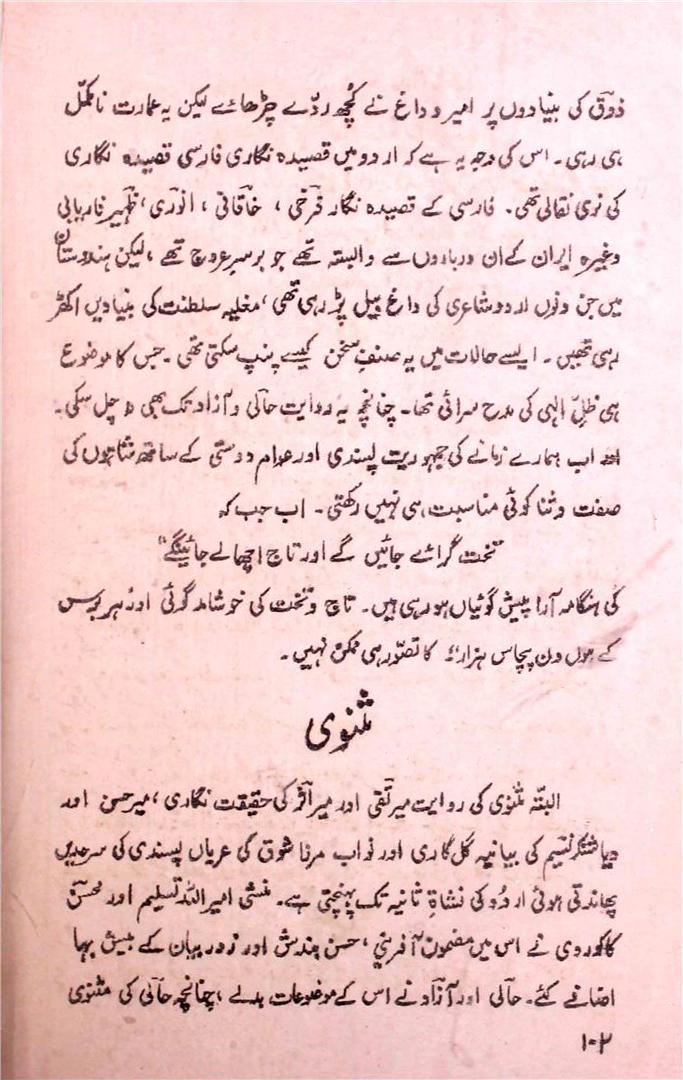 ذوقؔ کی بنیادوں پر امیر و داغ نے کچھ ردّے چڑھائے لیکن یہ عمارت نامکمّل
ہی رہی۔ اس کی وجہ یہ ہے کہ اردو میں قصیدہ نگاری فارسی قصیدہ نگاری
کی نری نقالی تھی۔ فارسی کے قصیدہ نگار فرخی ، خاقانی ، انوری، ظہیر فاریابی
وغیرہ ایران کے ان درباروں سے وابستہ تھے جو برسرِ عروج تھے ، لیکن ہندوستان
میں جن دنوں اردو شاعری کی داغ بیل پڑ رہی تھی ، مغلیہ سلطنت کی بنیادیں اکھڑ
رہی تھیں۔ ایسے حالات میں یہ صنفِ سخن کیسے پنپ سکتی تھی۔ جس کا موضوع
ہی ظلِّ الٰہی کی مدح سرائی تھا۔ چنانچہ یہ روایت حالی و آزاد تک بھی نہ چل سکی۔
اور اب ہمارے زمانے کی جمہوریت پسندی اور عوام دوستی کے ساتھ شاہوں کی
صفت و ثنا کوئی مناسبت ہی نہیں رکھتی۔ اب جب کہ
"تخت گرائے جائیں گے اور تاج اچھالے جائینگے"
کی ہنگامہ آرا پیش گوئیاں ہو رہی ہیں۔ تاج و تخت کی خوشامد گوئی اور "ہر برس
کے ہوں دن پچاس ہزار" کا تصوّر ہی ممکن نہیں۔
مثنوی
البتّہ مثنوی کی روایت میر تقی اور میر اثر کی حقیقت نگاری ، میر حسن اور
دیا شنکر نسیم کی بیانیہ گل کاری اور نواب مرزا شوق کی عریاں پسندی کی سرحدیں
پھاندتی ہوئی اردو کی نشاۃِ ثانیہ تک پہنچتی ہے۔ منشی امیر اللہ تسلیم اور محسنؔ
کاکوروی نے اس میں مضمون آفرینی ، حسن بندش اور زور بیان کے بیش بہا
اضافے کئے۔ حالی اور آزاد نے اس کے موضوعات بدلے ، چنانچہ حالی کی مثنوی
۱۰۲